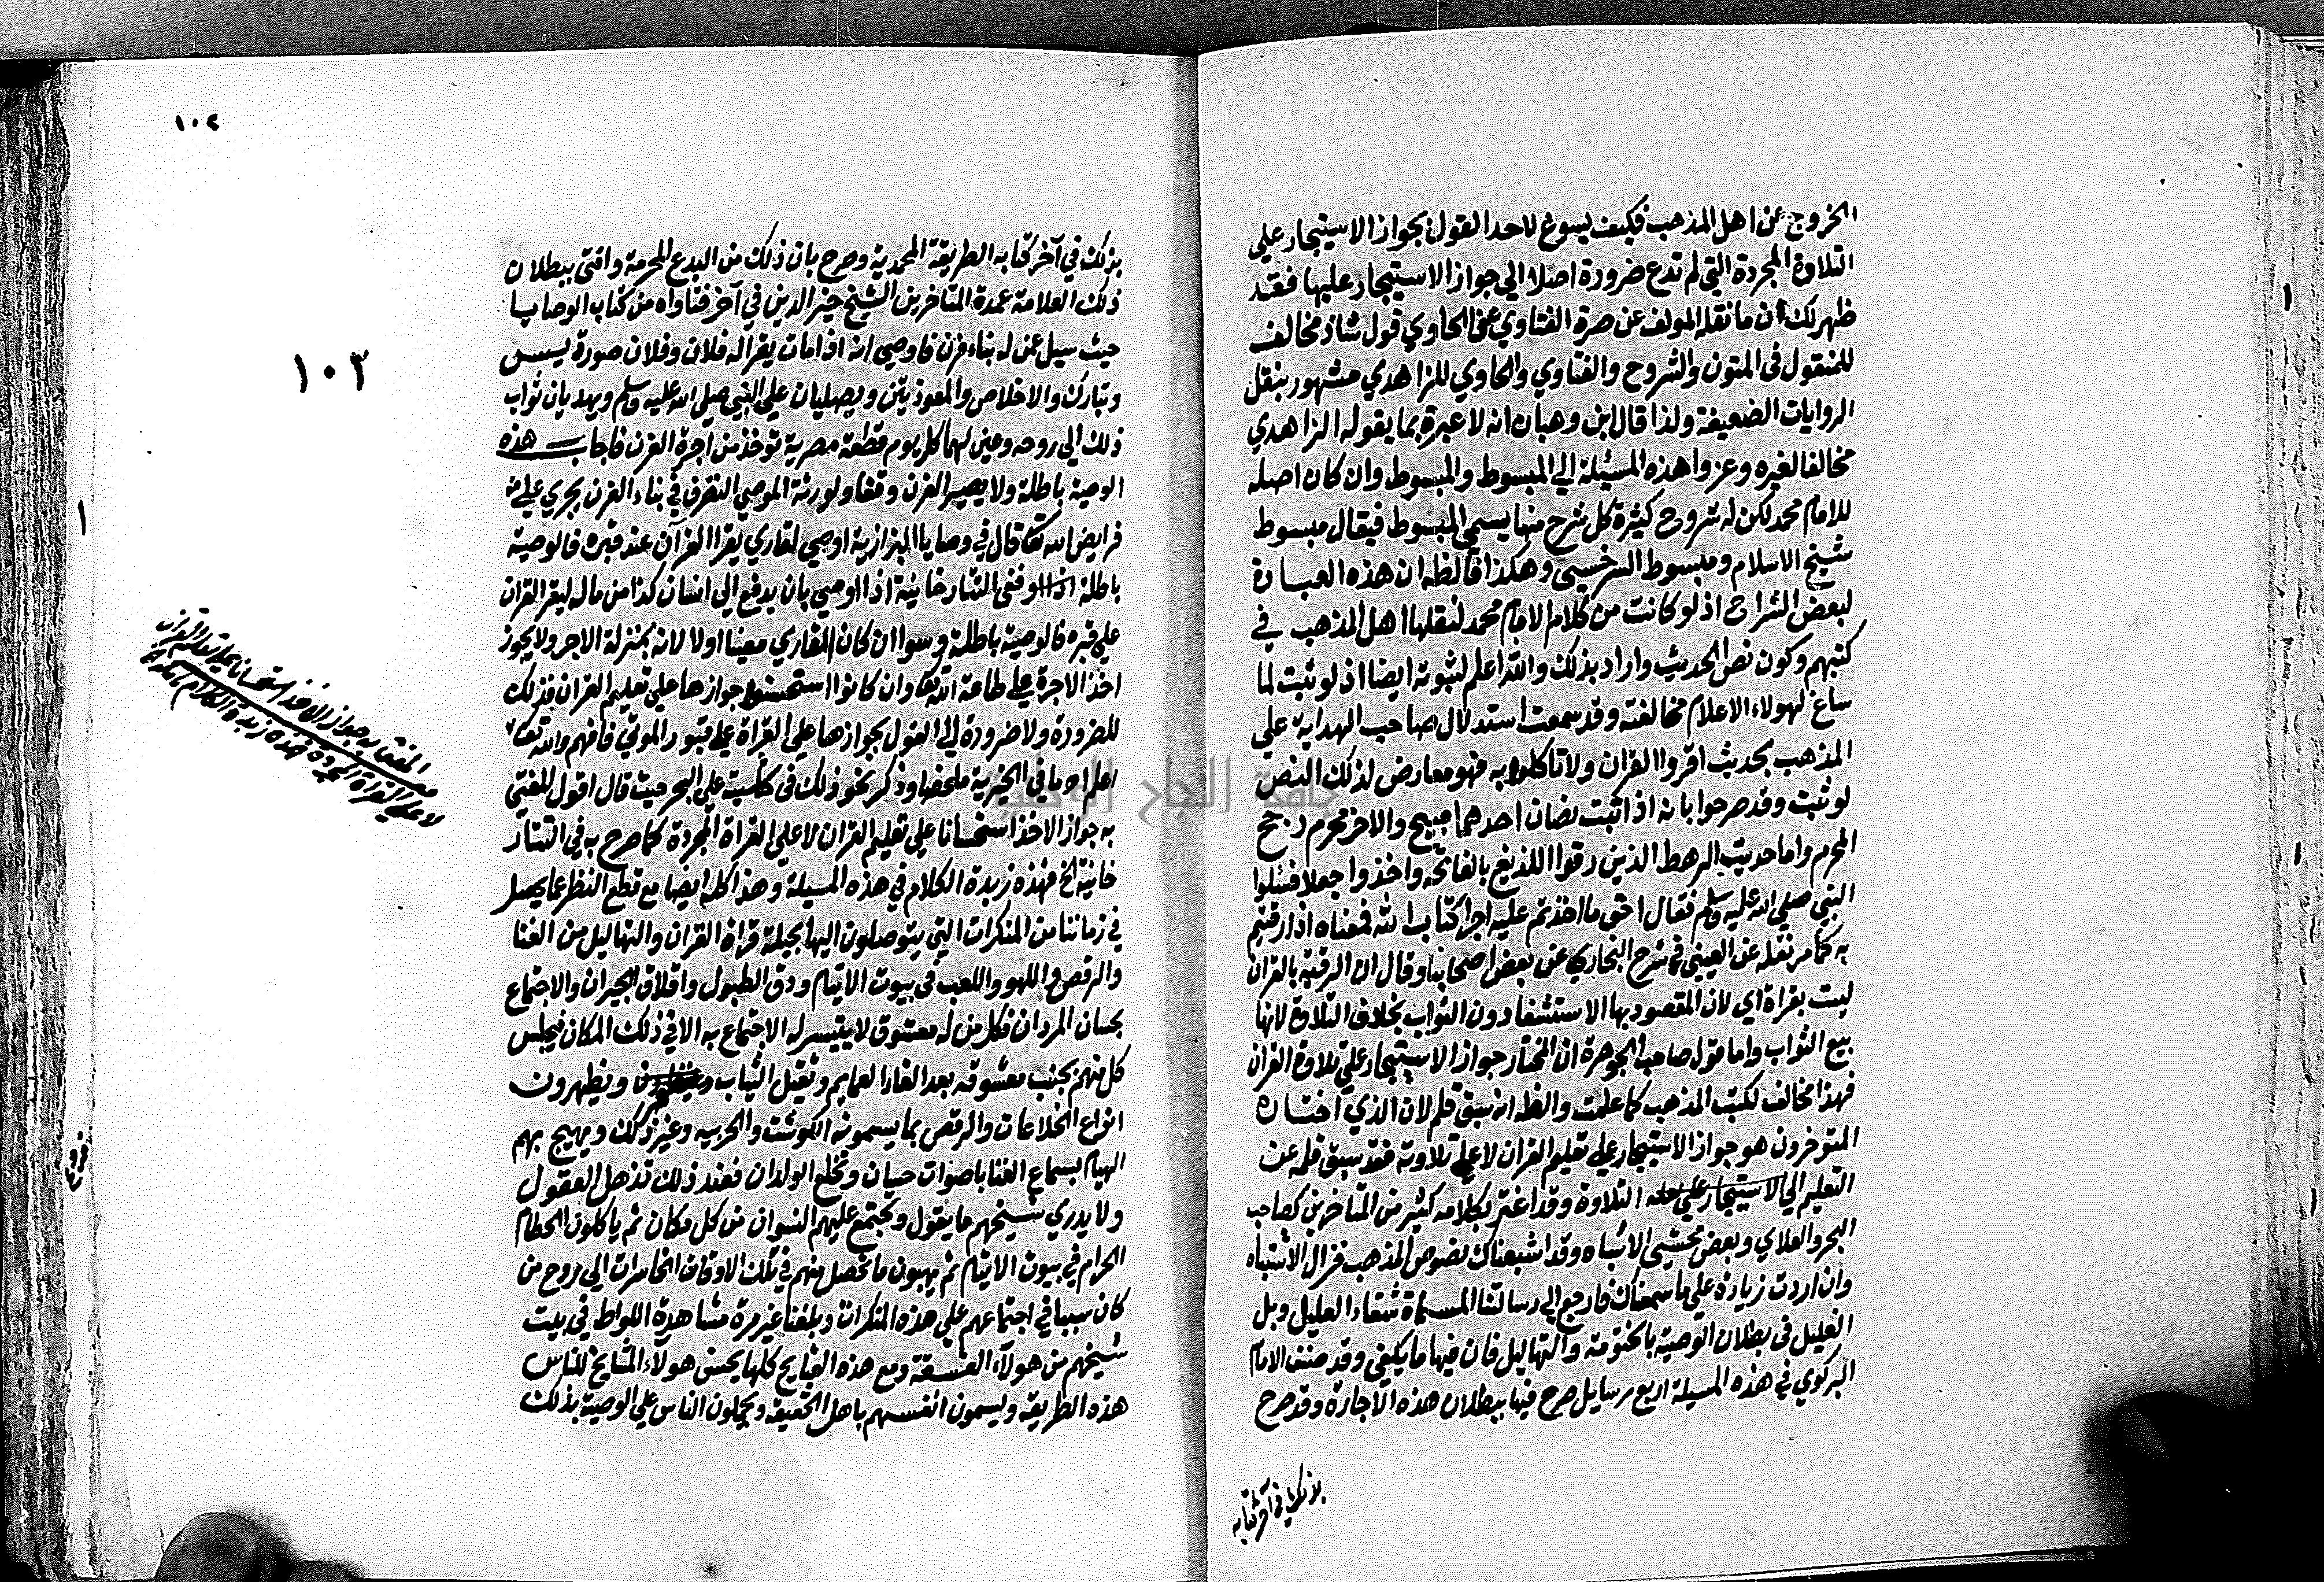 الخروج عن اهل المذهب فكيف يسوغ لاحد القول بجواز الاستيجار علي
التلاوة المجردة التي لم تدع ضرورة اصلا الي جواز الاستيجار عليها فقد
ظهر لك ان ما نقله المولف عن صرة الفتاوي عن الحاوي قول شاذ مخالف
للمنقول في المتون والشروح والفتاوي والحاوي للزاهدي مشهور بنقل
الروايات الضعيفة ولذا قال ابن وهبان انه لا عبرة بما يقوله الزاهدي
مخالفا لغيره وعزوا هذه المسئلة الي المبسوط والمبسوط وان كان اصله
للامام محمد لكن له شروح كثيرة كل شرح منها يسمي المبسوط فيقال مبسوط
شيخ الاسلام ومبسوط السرخسي وهكذا فالظه ان هذه العبارة
لبعض الشراح اذ لو كانت من كلام الامام محمد لنقلها اهل المذهب في
كتبهم وكون نص الحديث واراد بذلك والله اعلم لثبوته ايضا اذ لو ثبت لما
ساغ لهولاء الاعلام مخالفته وقد سمعت استدلال صاحب الهداية علي
المذهب بحديث اقروا القران ولا تاكلوا به فهو معارض لذلك النص
لو ثبت وقد صرحوا بانه اذا ثبت نضان احدهما مبيح والاخر محرم رجح
المحرم واما حديث الرهط الذين رقوا اللديغ بالفاتحه واخذوا جعلا فسئلوا
النبي صلي الله عليه وسلم فقال احق ما اخذتم عليه اجرا كتاب الله فمعناه اذا رقيتم
به كما مر نقله عن العيني في شرح البخاري عن بعض اصحابنا وقال ان الرقية بالقران
ليست بقراة اي لان المقصود بها الاستشفا دون الثواب بخلاف التلاوة لانها
بيع الثواب واما قول صاحب الجوهرة ان المختار جواز الاستيجار علي تلاوة القران
فهذا مخالف لكتب المذهب كما علمت والظه انه سبق قلم لان الذي اختاره
المتوخرون هو جواز الاستيجار علي تعليم القران لا علي تلاوته فقد سبق قلمه عن
التعليم الي الاستيجار علي التلاوة وقد اغتر بكلامه كثير من المتاخرين كصاحب
البحر والعلاي وبعض محشيي الاشباه وقد اشبعناك نصوص المذهب فزال الاشتباه
وان اردت زيادة علي ما سمعناك فارجع الي رسالتنا المسماة شفاء العليل وبل
الغليل في بطلان الوصية بالختومة والتهاليل فان فيها ما يكفي وقد صنف الامام
البركوي في هذه المسيلة اربع رسايل صرح فيها ببطلان هذه الاجارة وقد صرح
بذلك في آخر كتابه
١٠٢
١٠٣
بذلك في آخر كتابه الطريقة المحمدية وصرح بان ذلك من البدع المحرمة وافتي ببطلان
ذلك العلامة عمدة المتاخرين الشيخ خير الدين في آخر فتاواه من كتاب الوصايا
حيث سيل عمن له بناء فرن فاوصي انه اذا مات يقرا له فلان وفلان صورة يس
وتبارك والاخلاص والمعوذتين ويصليان علي النبي صلي الله عليه وسلم ويهديان ثواب
ذلك الي روحه وعين لهما كل يوم قطعة مصرية توخذ من اجرة الفرن فاجاب هذه
الوصية باطلة ولا يصير الفرن وقفا ولورثة الموصي التصرف في بناء الفرن يجري علي
فرايض الله تعا قال في وصايا البزازية اوصي لقاري يقرا القرآن عند قبره فالوصية
باطلة وفي التتارخانية اذا اوصي بان يدفع الي انسان كذا من ماله ليقرا القران
علي قبره فالوصية باطلة وسوا ان كان القاري معينا اولا لانه بمنزلة الاجر ولا يجوز
اخذ الاجرة علي طاعة الله تعا وان كانوا استحسنوا جوازها علي تعليم القران فذلك
للضرورة ولا ضرورة الي القول بجوازها علي القراة علي قبور الموتي فافهم والله تعا
اعلم اه ما في الخيرية ملخصا وذكر نحو ذلك في حاشيته علي البحر حيث قال اقول المفتي
به جواز الاخذ استحسانا علي تعليم القران لا علي القراة المجردة كما صرح به في التتار
خانية الخ فهذه زبدة الكلام في هذه المسيلة وهذا كله ايضا مع قطع النظر عما يحصل
في زماننا من المنكرات التي يتوصلون اليها بحيلة قراة القران والتهاليل من الغنا
والرقص واللهو واللعب في بيوت الايتام ودق الطبول واقلاق الجيران والاجتماع
بحسان المردان فكل من له معشوق لا يتيسر له الاجتماع به الا في ذلك المكان فيجلس
كل منهم بجنب معشوقه بعد القاء العمايم وثقيل الثياب ويظهرون
انواع الخلاعات والرقص بما يسمونه الكوشت والحربيه وغير ذلك ويهيج بهم
الهيام بسماع الغنا باصوات حسان وتخلع الولدان فعند ذلك تذهل العقول
ولا يدري شيخهم ما يقول وتجتمع عليهم النسوان من كل مكان ثم ياكلون الحطام
الحرام في بيوت الايتام ثم يهبون ما تحصل منهم في تلك الاوقات الخاسرات الي روح من
كان سببا في اجتماعهم علي هذه المنكرات وبلغنا غير مرة مشاهدة اللواط في بيت
شيخهم من هولاء الفسقة ومع هذه القبايح كلها يحسن هولاء المشايخ للناس
هذه الطريقه ويسمون انفسهم باهل الحقيقه ويحملون الناس علي الوصية بذلك
المفتي به جواز الاخذ استحسانا علي تعليم القران
لا علي القراة المجردة هذه زبدة الكلام